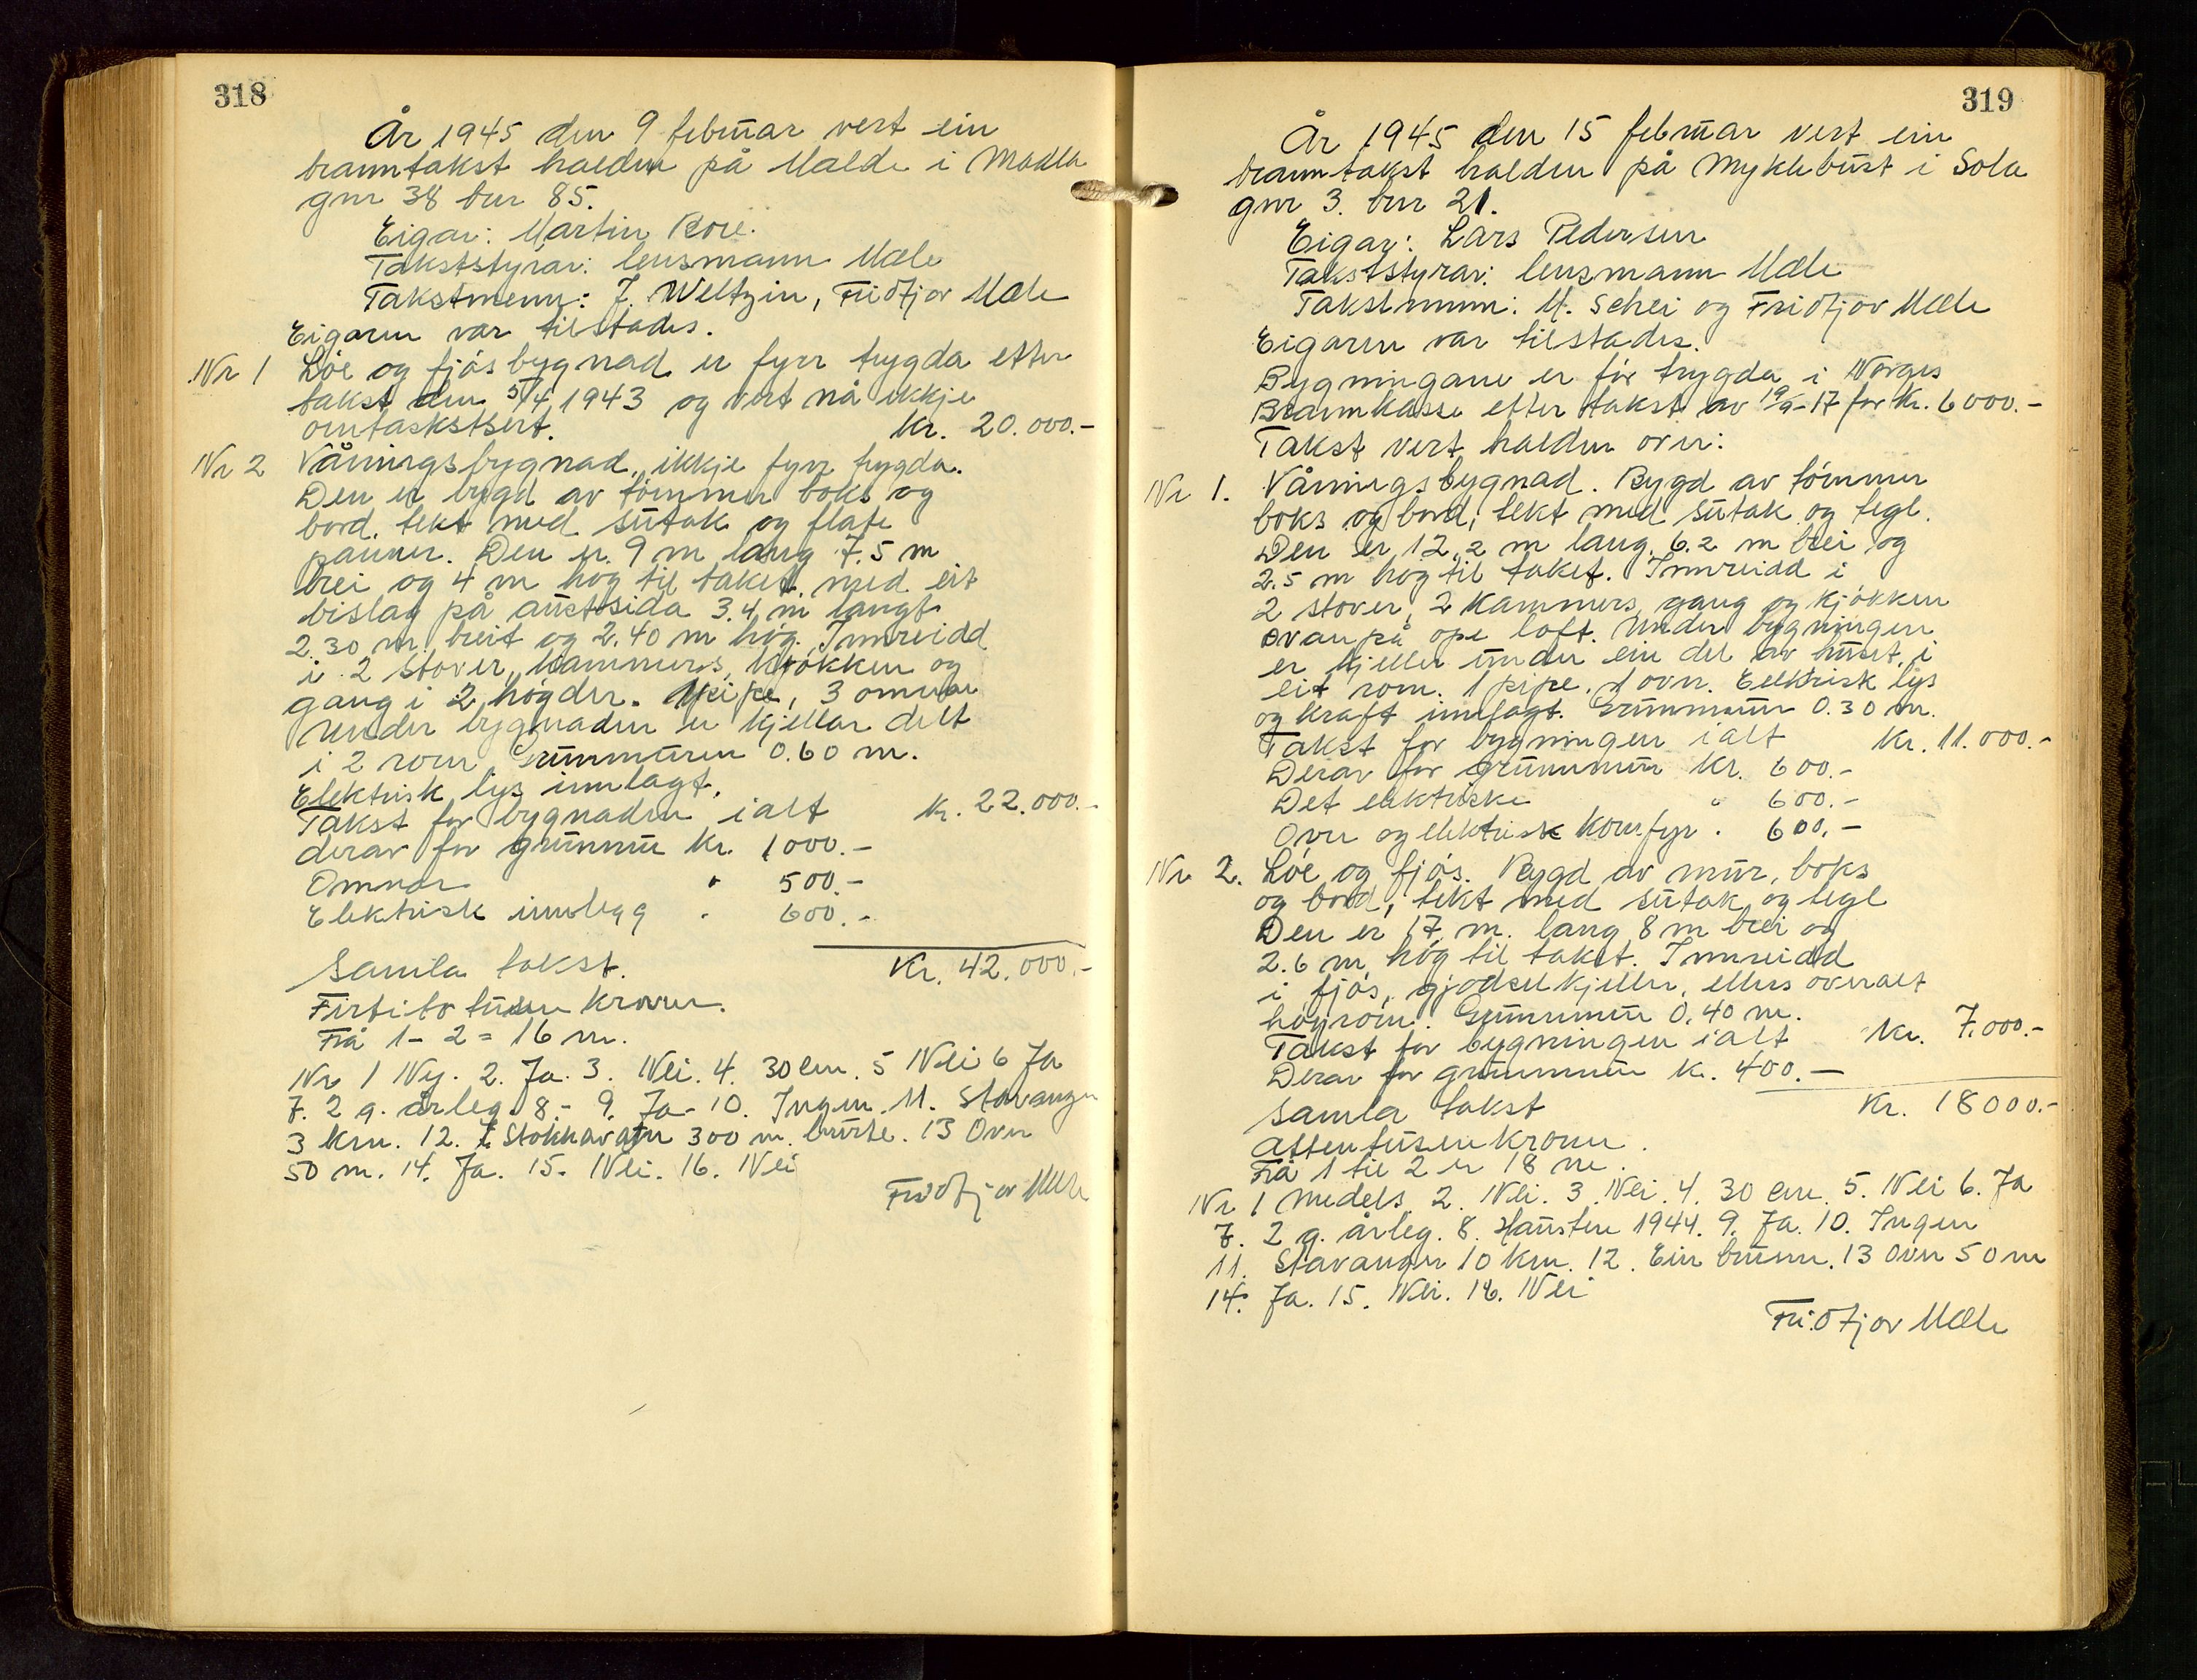 318
År 1945 den 9 februar vert ein
branntakst halden på Malde i Madla
gnr 38 bnr 85.
Eigar: Martin Bore.
Takststyrar: lensmann Mæle
Takstmenn: J. Weltzin, Fridtjov Mæle
Eigaren var tilstades.
Nr 1 Löe og fjósbygnad er fyrr trygda etter
takst den 5/4 1943 og vert nå ikkje
omtaskstsert. kr. 20.000.-
Nr 2 Våningsbygnad, ikkje fyrr trygda.
Den er bygd av tömmer boks og
bord, tekt med sutak og flate
panner. Den er 9 m lang 7.5 m
brei og 4 m høg til taket, med eit
bislag på austsida 3.4 m langt
2.30 m breit og 2.40 m høg. Innreidd
i 2 stover, kammers, kjökken og
gang i 2 högder. 1 pipe, 3 omnar
Under bygnaden er kjellar delt
i 2 rom Grunnmuren 0.60 m.
Elektrisk lys innlagt.
Takst for bygnaden ialt kr. 22.000.-
derav for grunnmur kr. 1000.-
Omnar " 500.-
Elektrisk innlegg " 600.-
Samla takst. Kr. 42.000.-
Firtito tusen kroner.
Frå 1 - 2 = 16 m.
Nr 1 Ny. 2. Ja. 3. Nei. 4. 30 cm. 5 Nei 6 Ja
7. 2 g. årleg. 8.- 9. Ja - 10. Ingen. 11. Stavanger
3 km. 12. Stokkavatn 300 m. burte. 13 Over
50 m. 14. Ja. 15. Nei. 16. Nei
Fridtjov Mæle
319
År 1945 den 15 februar vert ein
branntakst halden på Myklebust i Sola
gnr 3. bnr 21.
Eigar: Lars Pedersen
Takststyrar: lensmann Mæle
Takstmenn: M. Schei og Fridtjov Mæle
Eigaren var tilstades.
Bygningane er för trygda i Norges
Brannkasse etter takst av 19/9-17 for kr. 6000.-
Takst vert halden over:
Nr 1. Våningsbygnad. Bygd av tömmer
boks og bord, tekt med sutak og tegl.
Den er 12,2 m lang, 6.2 m brei og
2.5 m høg til taket. Innreidd i
2 stover, 2 kammers, gang og kjökken
ovanpå ope loft. Under bygningen
er kjeller under ein del av huset, i
eit rom. 1 pipe, 1 ovn. Eelktrisk lys
og kraft innlagt. Grunnmur 0.30 m.
Takst for bygningen ialt kr. 11.000.-
Derav for grunnmur kr. 600.-
Det elektriske " 600.-
Ovn og elektrisk komfyr " 600.-
Nr 2. Löe og fjós. Bygd av mur, boks
og bord, tekt med sutak og tegl
Den er 17 m. lang 8 m brei og
2.6 m høg til taket. Innreidd
i fjós, gjødselkjeller, ellers overalt
høyrom. Grunnmur 0,40 m.
Takst for bygningen ialt kr. 7.000.-
Derav for grunnmur kr. 400.-
Samla takst Kr. 18000.-
Attentusen kroner.
Frå 1 til 2 er 18 m.
Nr 1 Medels. 2. Nei. 3. Nei. 4. 30 cm. 5. Nei 6. Ja
7. 2 g. årleg. 8. Hausten 1944. 9. Ja. 10. Ingen
11. Stavanger 10 km. 12. Ein brunn. 13 Over 50 m
14. Ja. 15. Nei. 16. Nei
Fridtjov Mæle